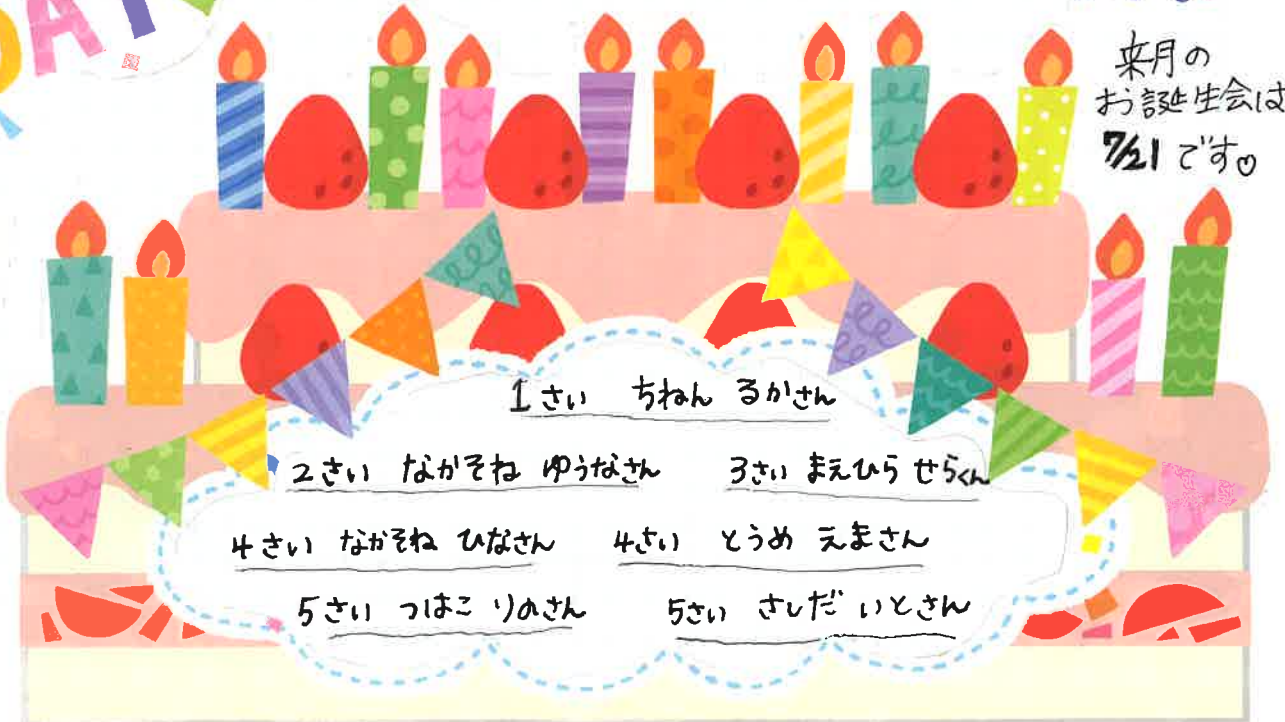 DAY
来月の
お誕生会は
7/21 です♡
1さい ちねん るかさん
2さい なかそね ゆうなさん 3さい まえひら せらくん
4さい なかそね ひなさん 4さい とうめ えまさん
5さい つはこ りのさん 5さい さしだ いとさん